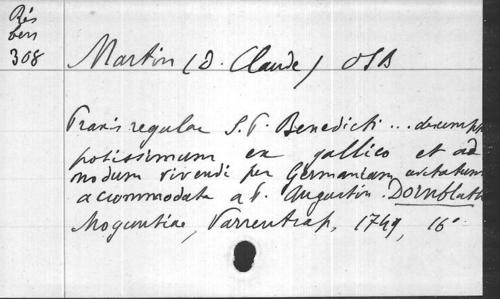 Rés
ben
308
Martin (D. Claude) OSB
Praxis regulae S. P. Benedicti ... desumpt
potissimum ex gallico et ad
modum vivendi per Germaniam usitatum
accommodata a P. Augustin. Dornblath
Moguntiae, Varrentrap, 1749, 16°